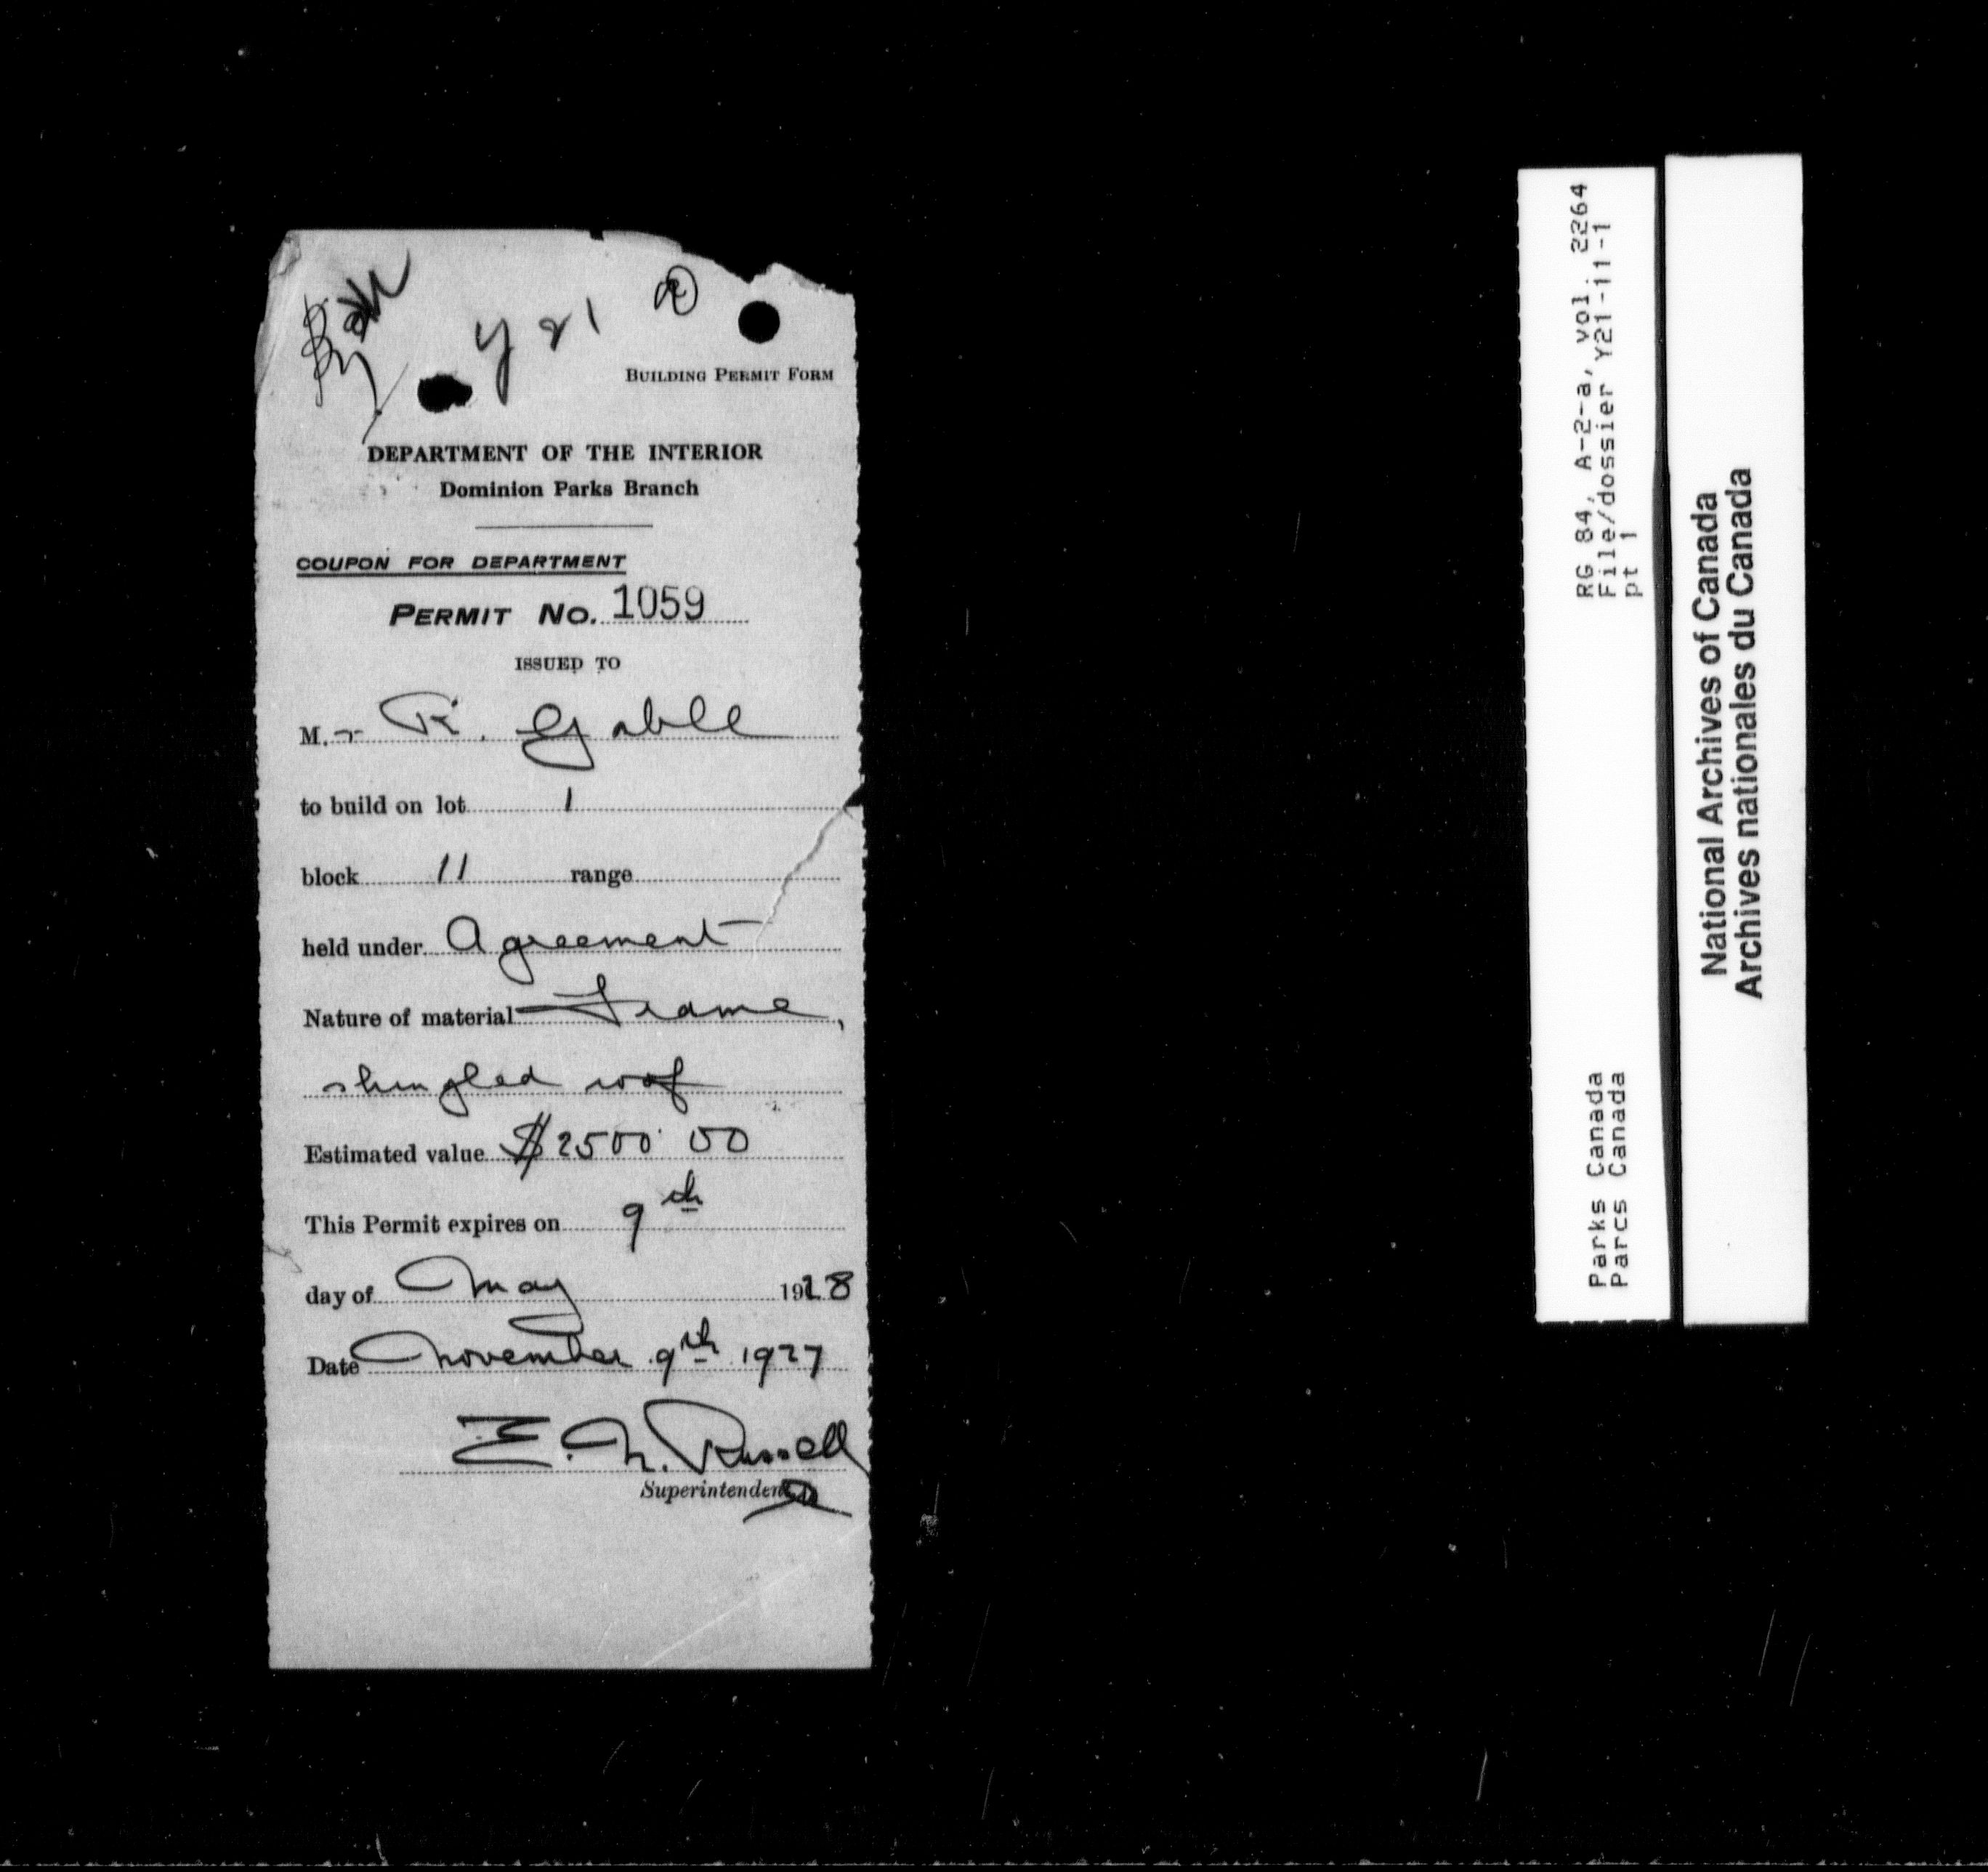 y 21
BUILDING PERMIT FORM
DEPARTMENT OF THE INTERIOR
Dominion Parks Branch
COUPON FOR DEPARTMENT
PERMIT NO. 1059
ISSUED TO
M. r R. Gable
to build on lot 1
block 11 range
held under Agreement
Nature of material Frame,
shingled roof
Estimated value $2500 00
This Permit expires on 9th
day of May 1928
Date November 9th 1927
E. N. Russell
Superintendent
RG 84, A-2-a, vol. 2264
File/dossier Y21-11-1
pt 1
Parks Canada
Parcs Canada
National Archives of Canada
Archives nationales du Canada